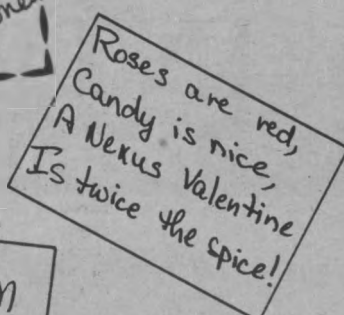 Roses are red,
Candy is nice,
A Nexus Valentine
Is twice the spice!